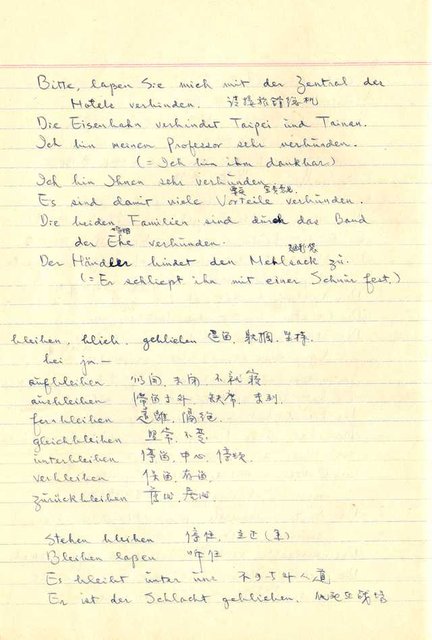 Bitte, laßen Sie mich mit der Zentral des
Hotels verbinden. 請接旅館總机
Die Eisenbahn verbindet Taipei und Tainen.
Ich bin meinen Professor sehr verbunden.
(= Ich bin ihm dankbar.)
Ich bin Ihnen sehr verbunden.
Es sind damit viele Vorteile verbunden.
Die beiden Familien sind durch das Band
婚姻
der Ehe verbunden.
Der Händler bindet den Mehlsack zu.
(= Er schließt ihn mit einer Schnur fest.)
bleiben, blieb, geblieben 逗留, 堅持
bei jm. —
aufbleiben 仍開, 未閉, 不就寢
ausbleiben 停留于外, 缺席, 未到
fernbleiben 遠離, 隔絕
gleichbleiben 照常, 不變
unterbleiben 停留, 中止, 停歇
verbleiben 保留, 存留
zurückbleiben 落後
Stehen bleiben 停住, 立正
Bleiben laßen
Es bleibt unter uns 不足与外人道
Er ist der Schlacht geblieben.